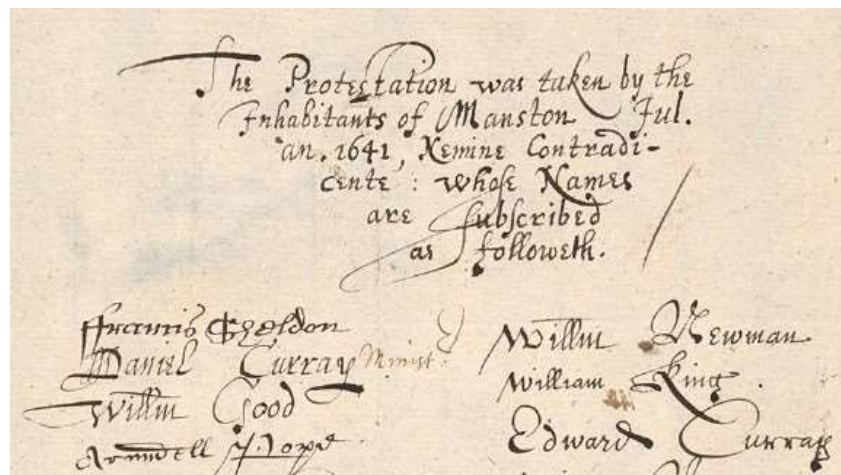 The Protestation was taken by the
Inhabitants of Manston Jul.
an. 1641, Nemine Contradi-
cente : whose Names
are subscribed
as followeth.
ffrancis Sheldon
Daniel Curray Minist.
Willm Good
Arundell
Willm Newman
William King
Edward Curray